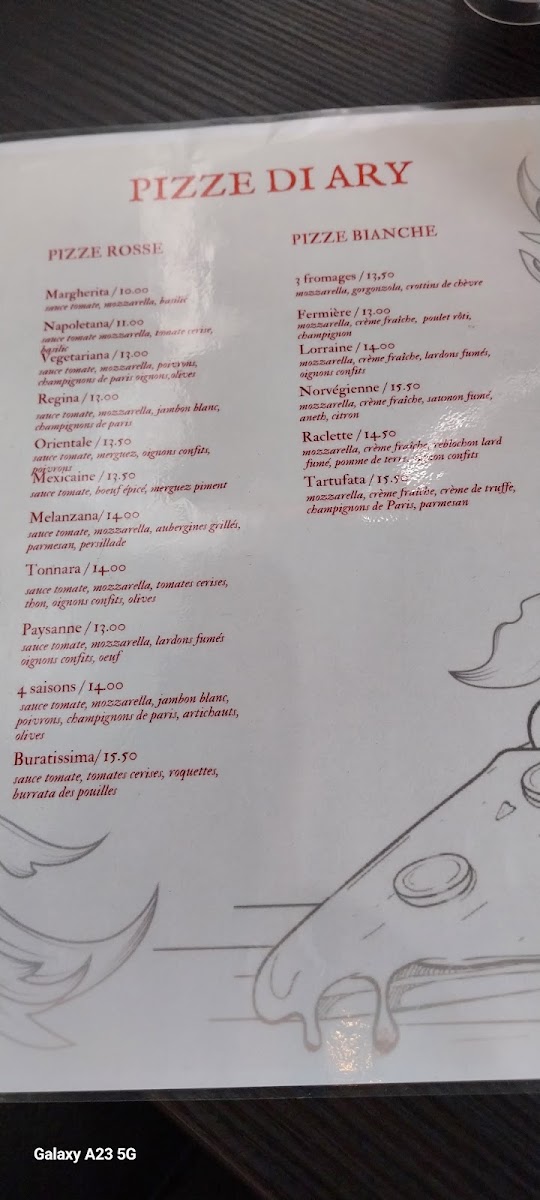 PIZZE DI ARY
PIZZE ROSSE
Margherita / 10.00
sauce tomate, mozzarella, basilic
Napoletana/ 11.00
sauce tomate mozzarella, tomate cerise,
basilic
Vegetariana / 13.00
sauce tomate, mozzarella, poivrons,
champignons de paris oignons,olives
Regina / 13.00
sauce tomate, mozzarella, jambon blanc,
champignons de paris
Orientale / 13.50
sauce tomate, merguez, oignons confits,
poivrons
Mexicaine / 13.50
sauce tomate, boeuf épicé, merguez piment
Melanzana/ 14.00
sauce tomate, mozzarella, aubergines grillés,
parmesan, persillade
Tonnara / 14.00
sauce tomate, mozzarella, tomates cerises,
thon, oignons confits, olives
Paysanne / 13.00
sauce tomate, mozzarella, lardons fumés
oignons confits, oeuf
4 saisons / 14.00
sauce tomate, mozzarella, jambon blanc,
poivrons, champignons de paris, artichauts,
olives
Buratissima/ 15.50
sauce tomate, tomates cerises, roquettes,
burrata des pouilles
PIZZE BIANCHE
3 fromages / 13,50
mozzarella, gorgonzola, crottins de chèvre
Fermière / 13.00
mozzarella, crème fraîche, poulet rôti,
champignon
Lorraine / 14.00
mozzarella, crème fraîche, lardons fumés,
oignons confits
Norvégienne / 15.50
mozzarella, crème fraîche, saumon fumé,
aneth, citron
Raclette / 14.50
mozzarella, crème fraîche, reblochon lard
fumé, pomme de terre, oignon confits
Tartufata / 15.50
mozzarella, crème fraîche, crème de truffe,
champignons de Paris, parmesan
Galaxy A23 5G